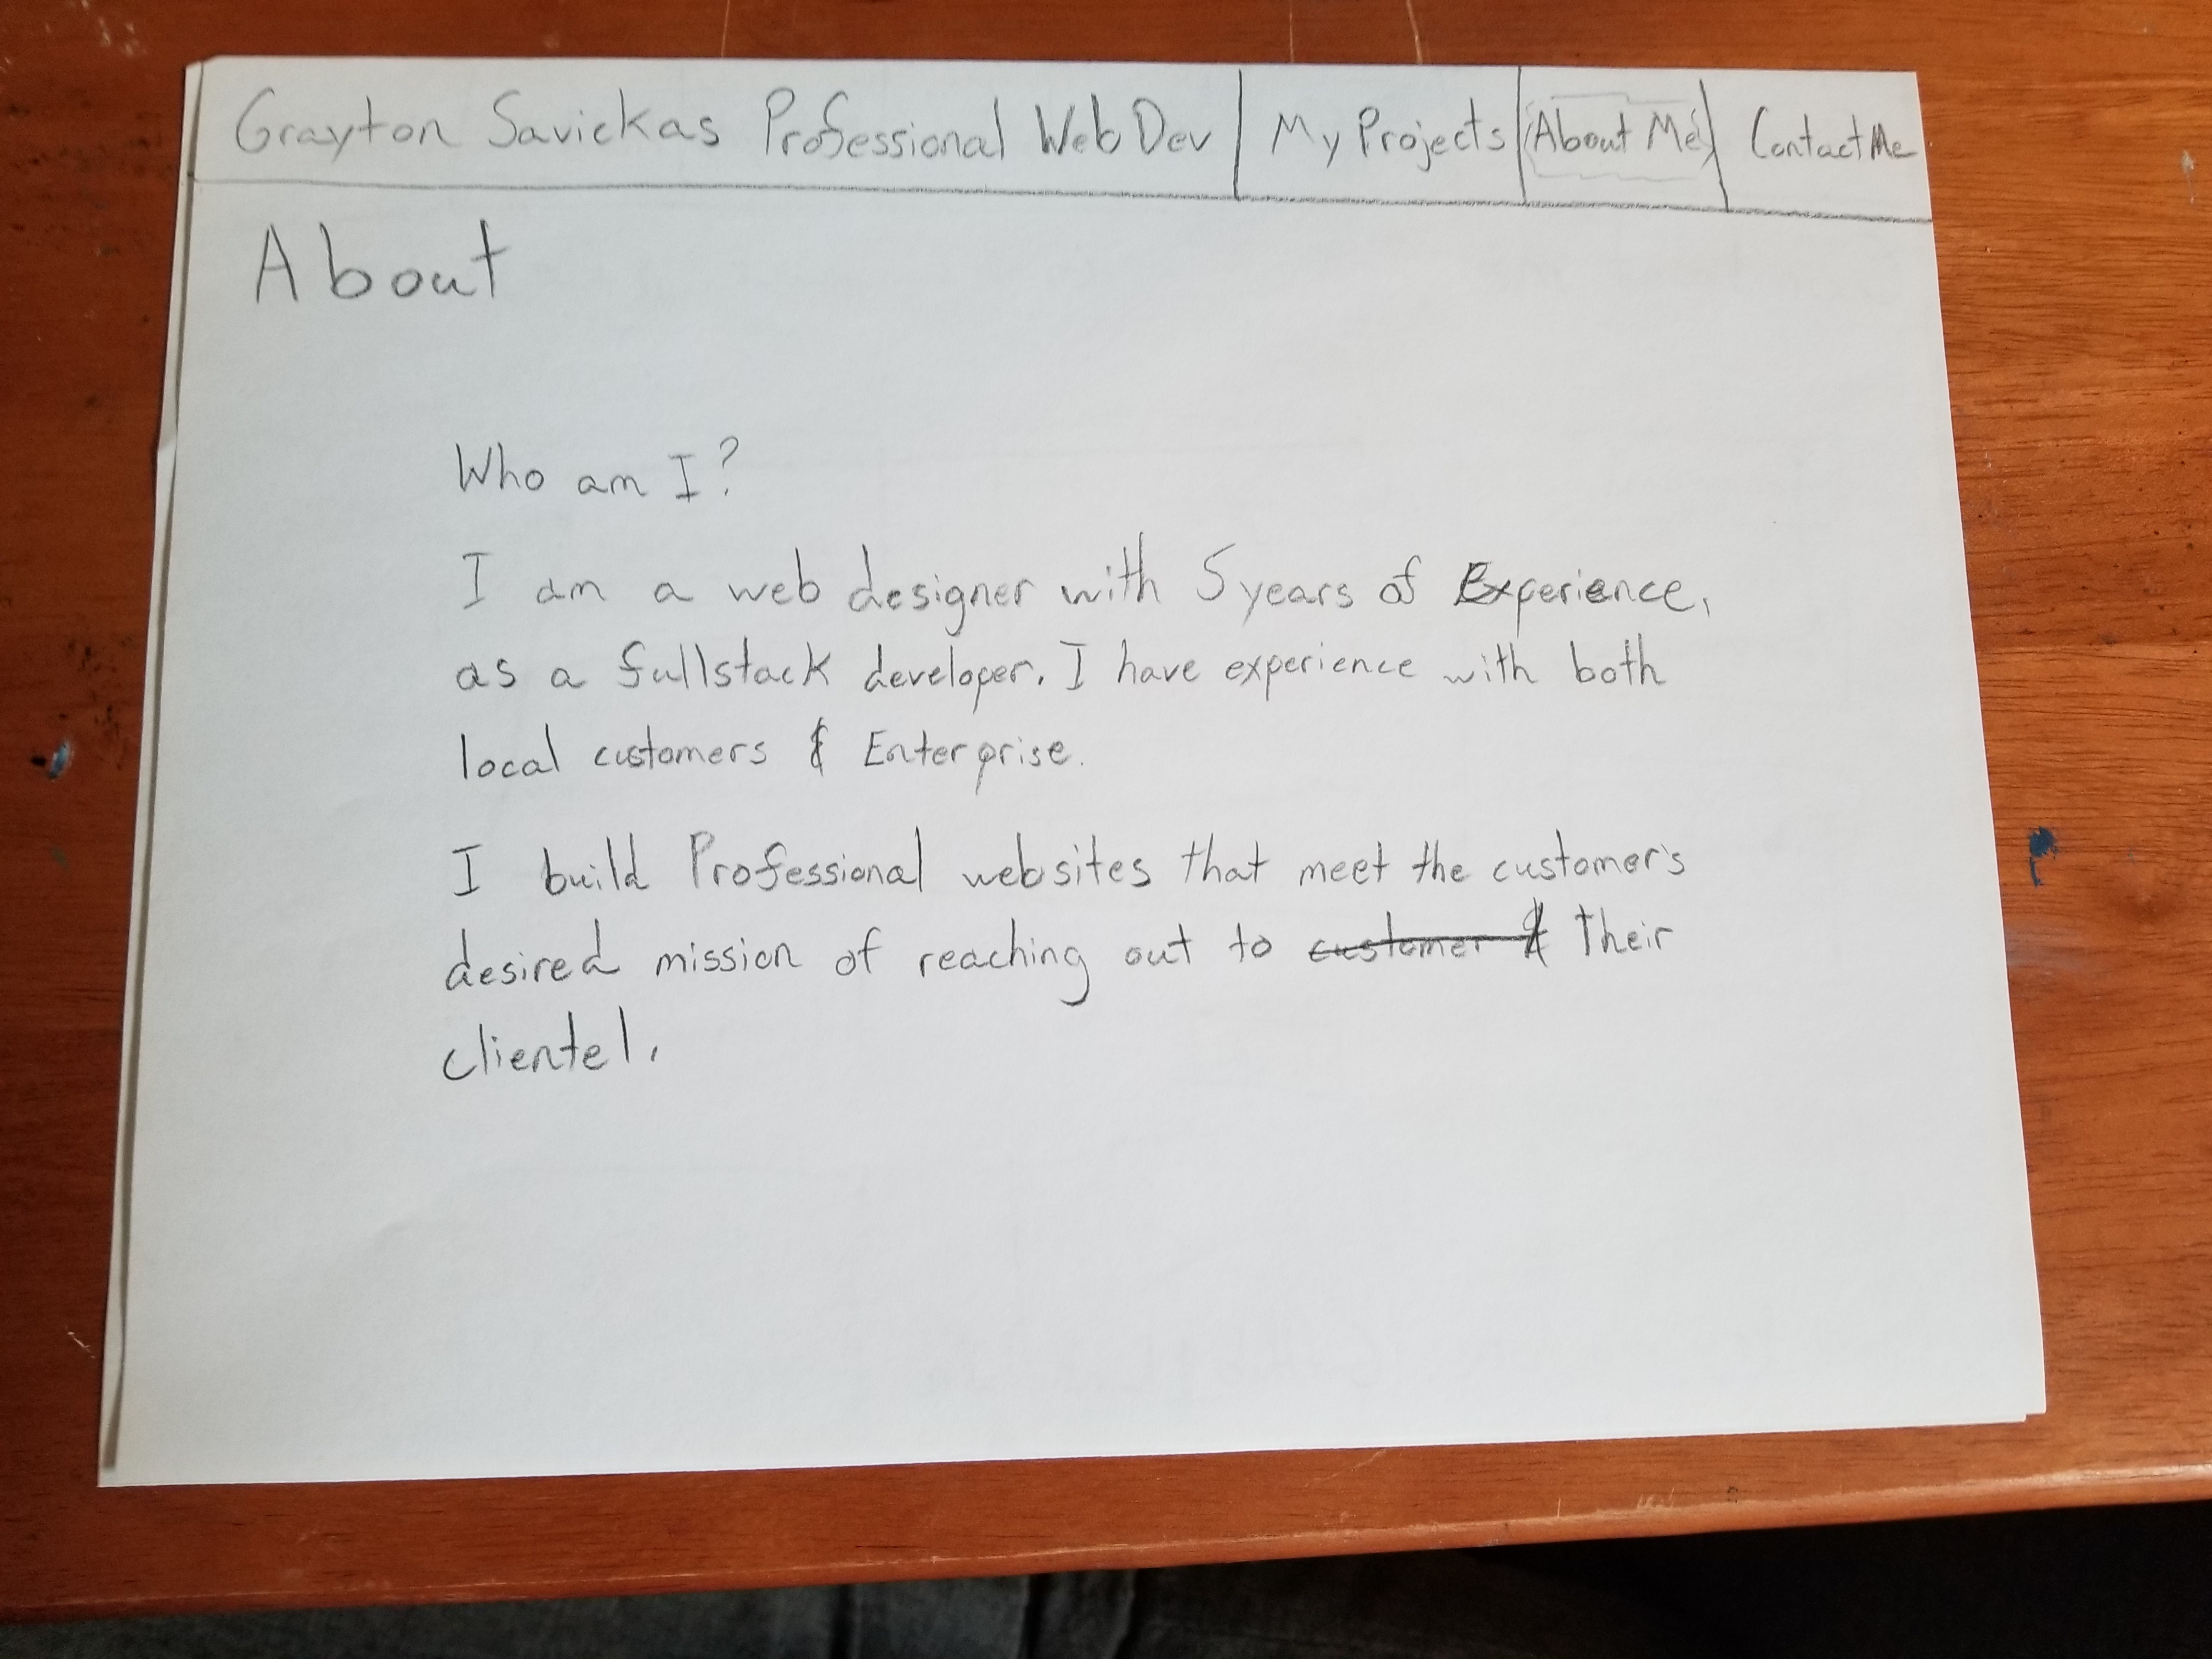 Grayton Savickas Professional Web Dev My Projects About Me Contact Me
About
Who am I?
I am a web designer with 5 years of Experience,
as a fullstack developer. I have experience with both
local customers & Enterprise.
I build Professional websites that meet the customer's
desired mission of reaching out to customer & their
clientel.